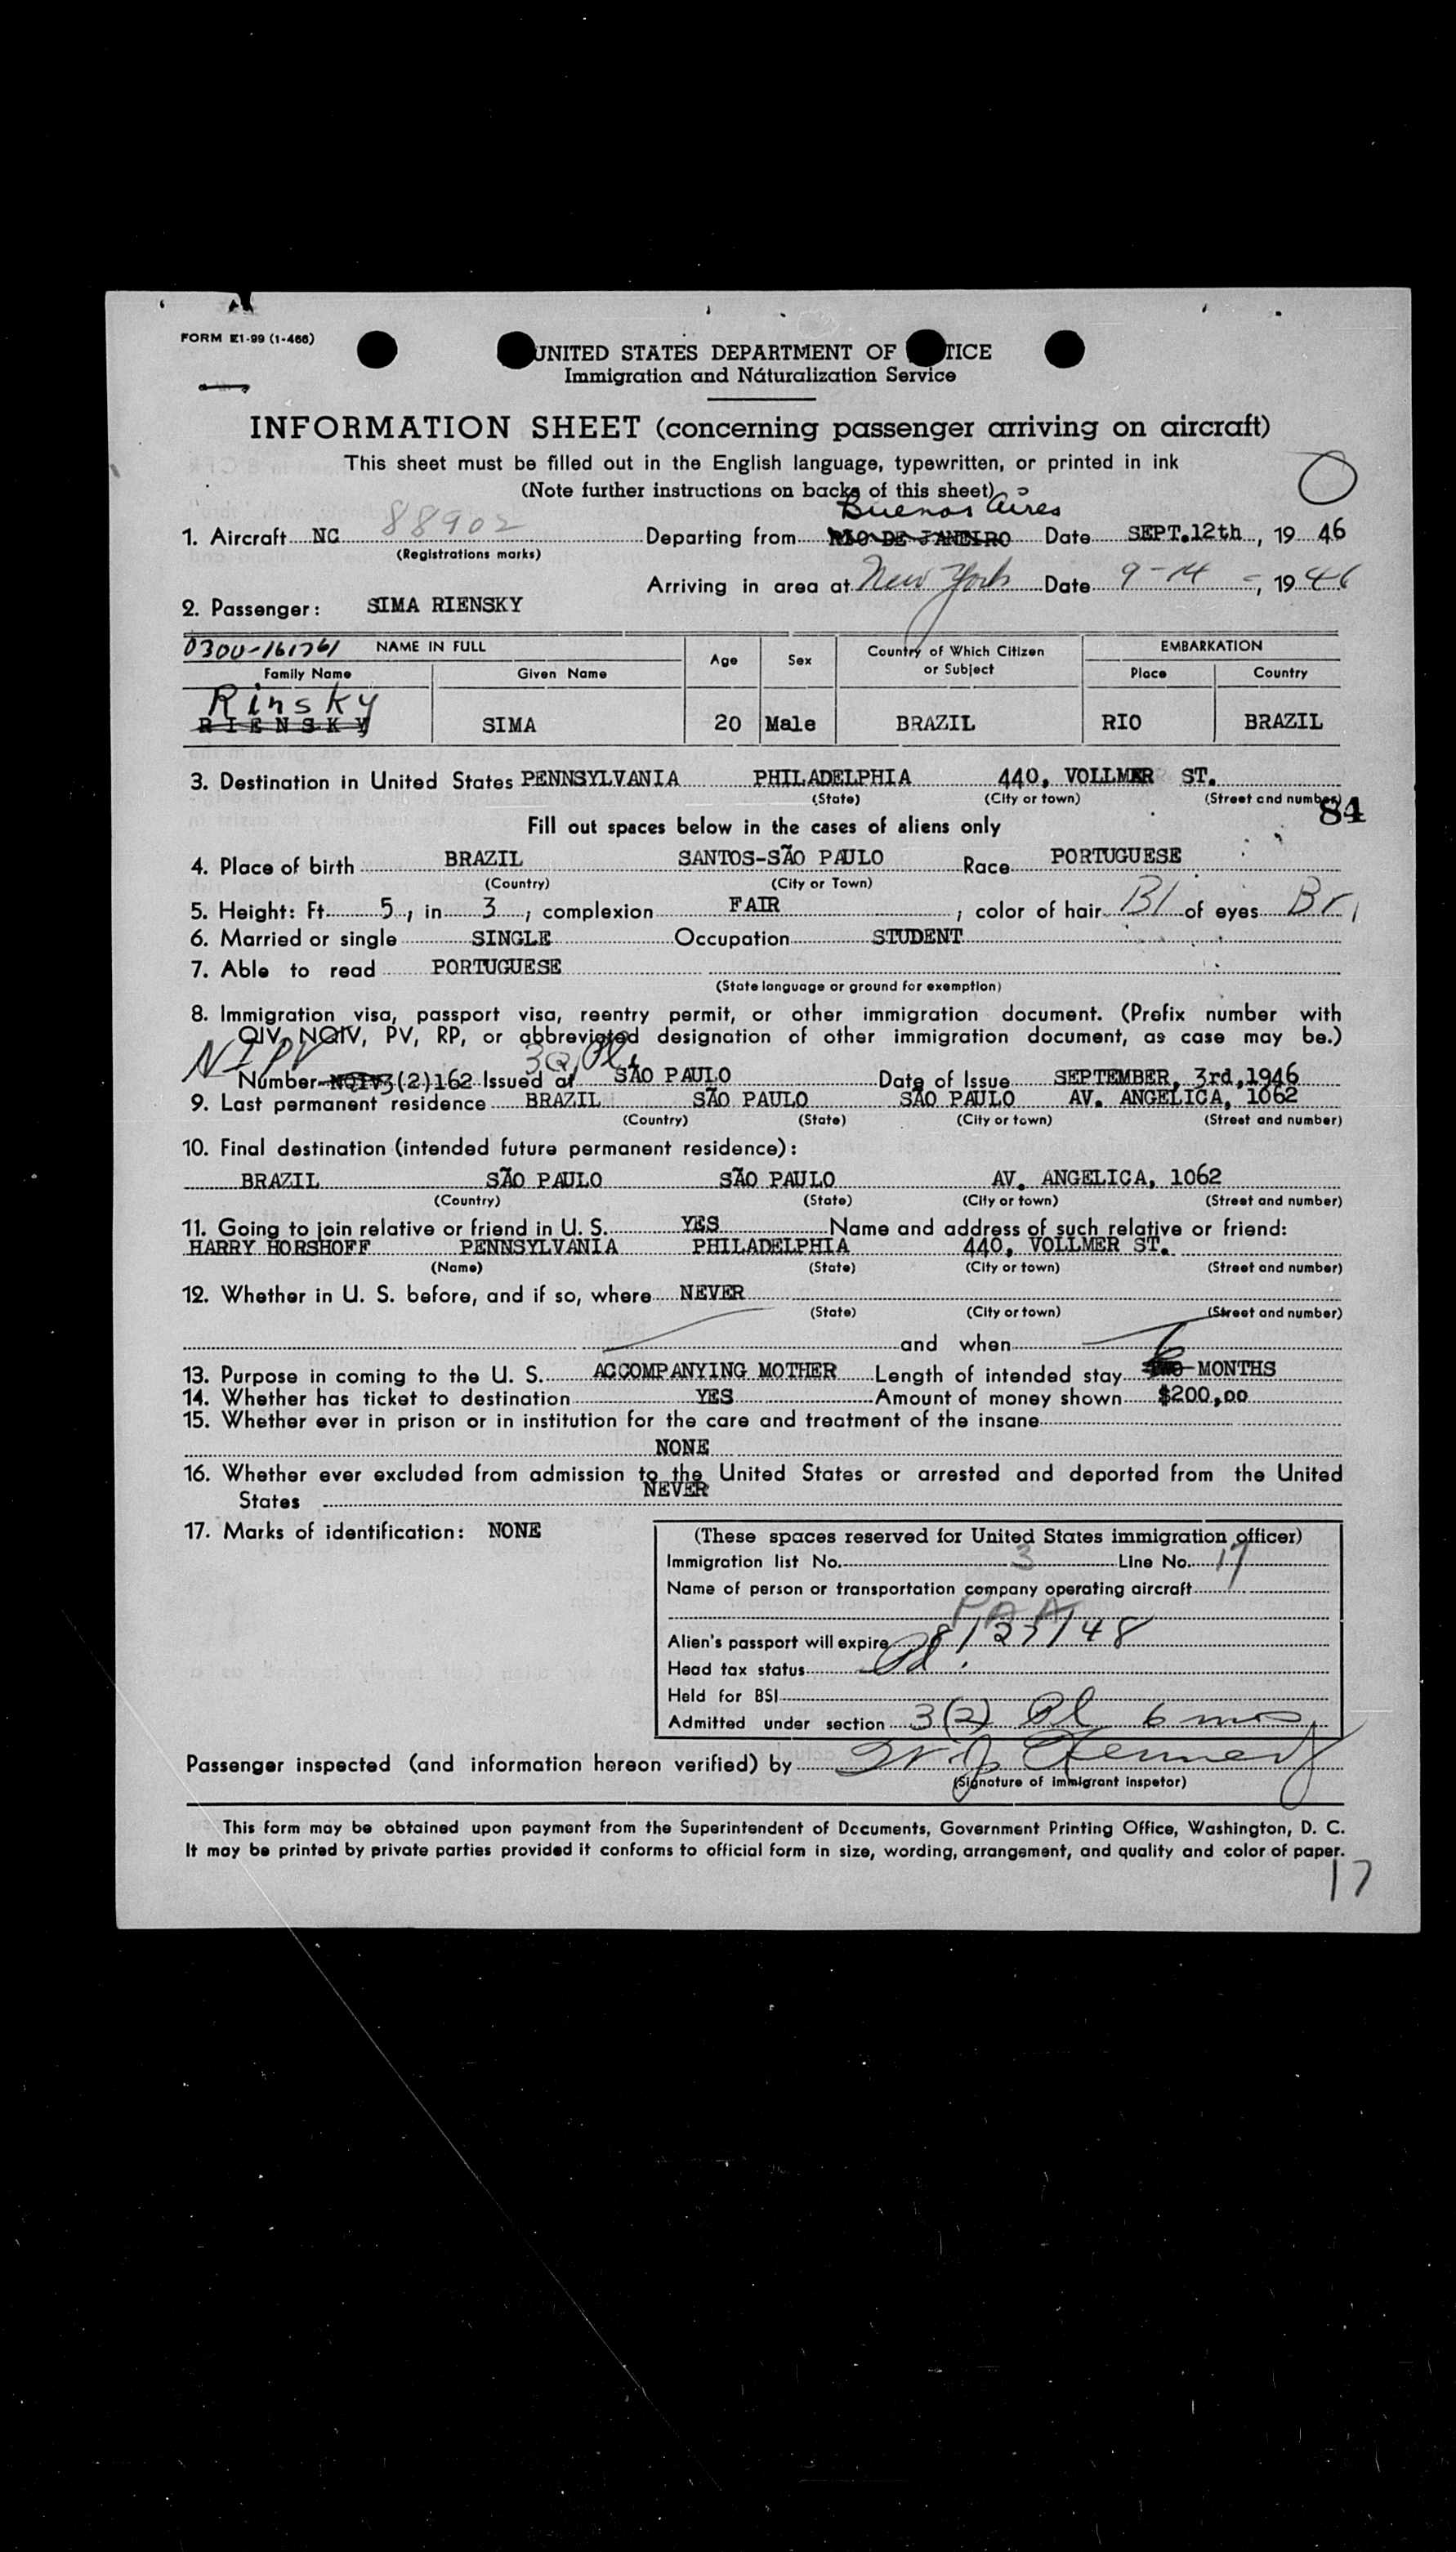 FORM E1-99 (1-466)
UNITED STATES DEPARTMENT OF TICE
Immigration and Naturalization Service
INFORMATION SHEET (concerning passenger arriving on aircraft)
This sheet must be filled out in the English language, typewritten, or printed in ink
(Note further instructions on backs of this sheet)
Buenos Aires
1. Aircraft NC 88902 Departing from RIO DE JANEIRO Date SEPT.12th, 19 46
(Registrations marks)
Arriving in area at New York Date 9-14-, 1946
2. Passenger: SIMA RIENSKY
0300-161761 NAME IN FULL Age Sex Country of Which Citizen or Subject EMBARKATION
Family Name Given Name Place Country
Rinsky
RIENSKY SIMA 20 Male BRAZIL RIO BRAZIL
3. Destination in United States PENNSYLVANIA PHILADELPHIA 440, VOLLMER ST.
(State) (City or town) (Street and number)
84
Fill out spaces below in the cases of aliens only
4. Place of birth BRAZIL SANTOS-SÃO PAULO Race PORTUGUESE
(Country) (City or Town)
5. Height: Ft. 5, in 3, complexion FAIR, color of hair Bl of eyes Br
6. Married or single SINGLE Occupation STUDENT
7. Able to read PORTUGUESE
(State language or ground for exemption)
8. Immigration visa, passport visa, reentry permit, or other immigration document. (Prefix number with
QIV, NQIV, PV, RP, or abbreviated designation of other immigration document, as case may be.)
NIPV
Number NQIV3(2)162 Issued at SÃO PAULO Date of Issue SEPTEMBER, 3rd,1946
9. Last permanent residence BRAZIL SÃO PAULO SÃO PAULO AV. ANGELICA, 1062
(Country) (State) (City or town) (Street and number)
10. Final destination (intended future permanent residence):
BRAZIL SÃO PAULO SÃO PAULO AV. ANGELICA, 1062
(Country) (State) (City or town) (Street and number)
11. Going to join relative or friend in U. S. YES Name and address of such relative or friend:
HARRY HORSHOFF PENNSYLVANIA PHILADELPHIA 440, VOLLMER ST.
(Name) (State) (City or town) (Street and number)
12. Whether in U. S. before, and if so, where NEVER
(State) (City or town) (Street and number)
and when
13. Purpose in coming to the U. S. ACCOMPANYING MOTHER Length of intended stay 6 MONTHS
14. Whether has ticket to destination YES Amount of money shown $200,00
15. Whether ever in prison or in institution for the care and treatment of the insane
NONE
16. Whether ever excluded from admission to the United States or arrested and deported from the United
States NEVER
17. Marks of identification: NONE
(These spaces reserved for United States immigration officer)
Immigration list No. 3 Line No. 17
Name of person or transportation company operating aircraft
PAA
Alien's passport will expire 8/27/48
Head tax status Pd.
Held for BSI
Admitted under section 3(2) Pl 6 mos
Passenger inspected (and information hereon verified) by W. J. Kennedy
(Signature of immigrant inspetor)
This form may be obtained upon payment from the Superintendent of Documents, Government Printing Office, Washington, D. C.
It may be printed by private parties provided it conforms to official form in size, wording, arrangement, and quality and color of paper.
17